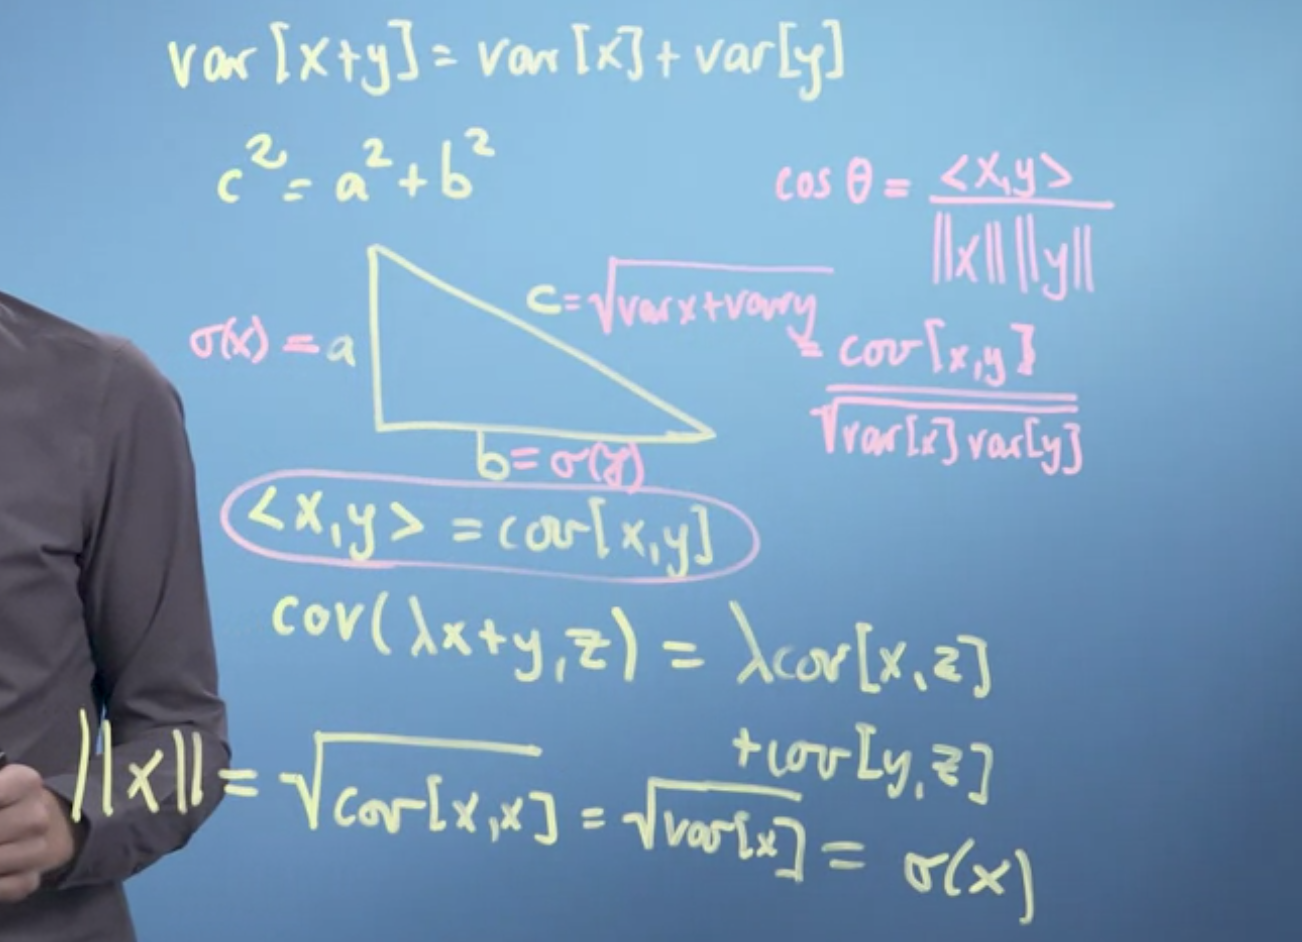 var[x+y] = var[x] + var[y]
c² = a² + b²
cos θ = <x,y> / ||x|| ||y||
= cov[x,y] / √var[x] var[y]
c = √var x + var y
σ(x) = a
b = σ(y)
<x,y> = cov[x,y]
cov(λx+y,z) = λcov[x,z]
+cov[y,z]
||x|| = √cov[x,x] = √var[x] = σ(x)